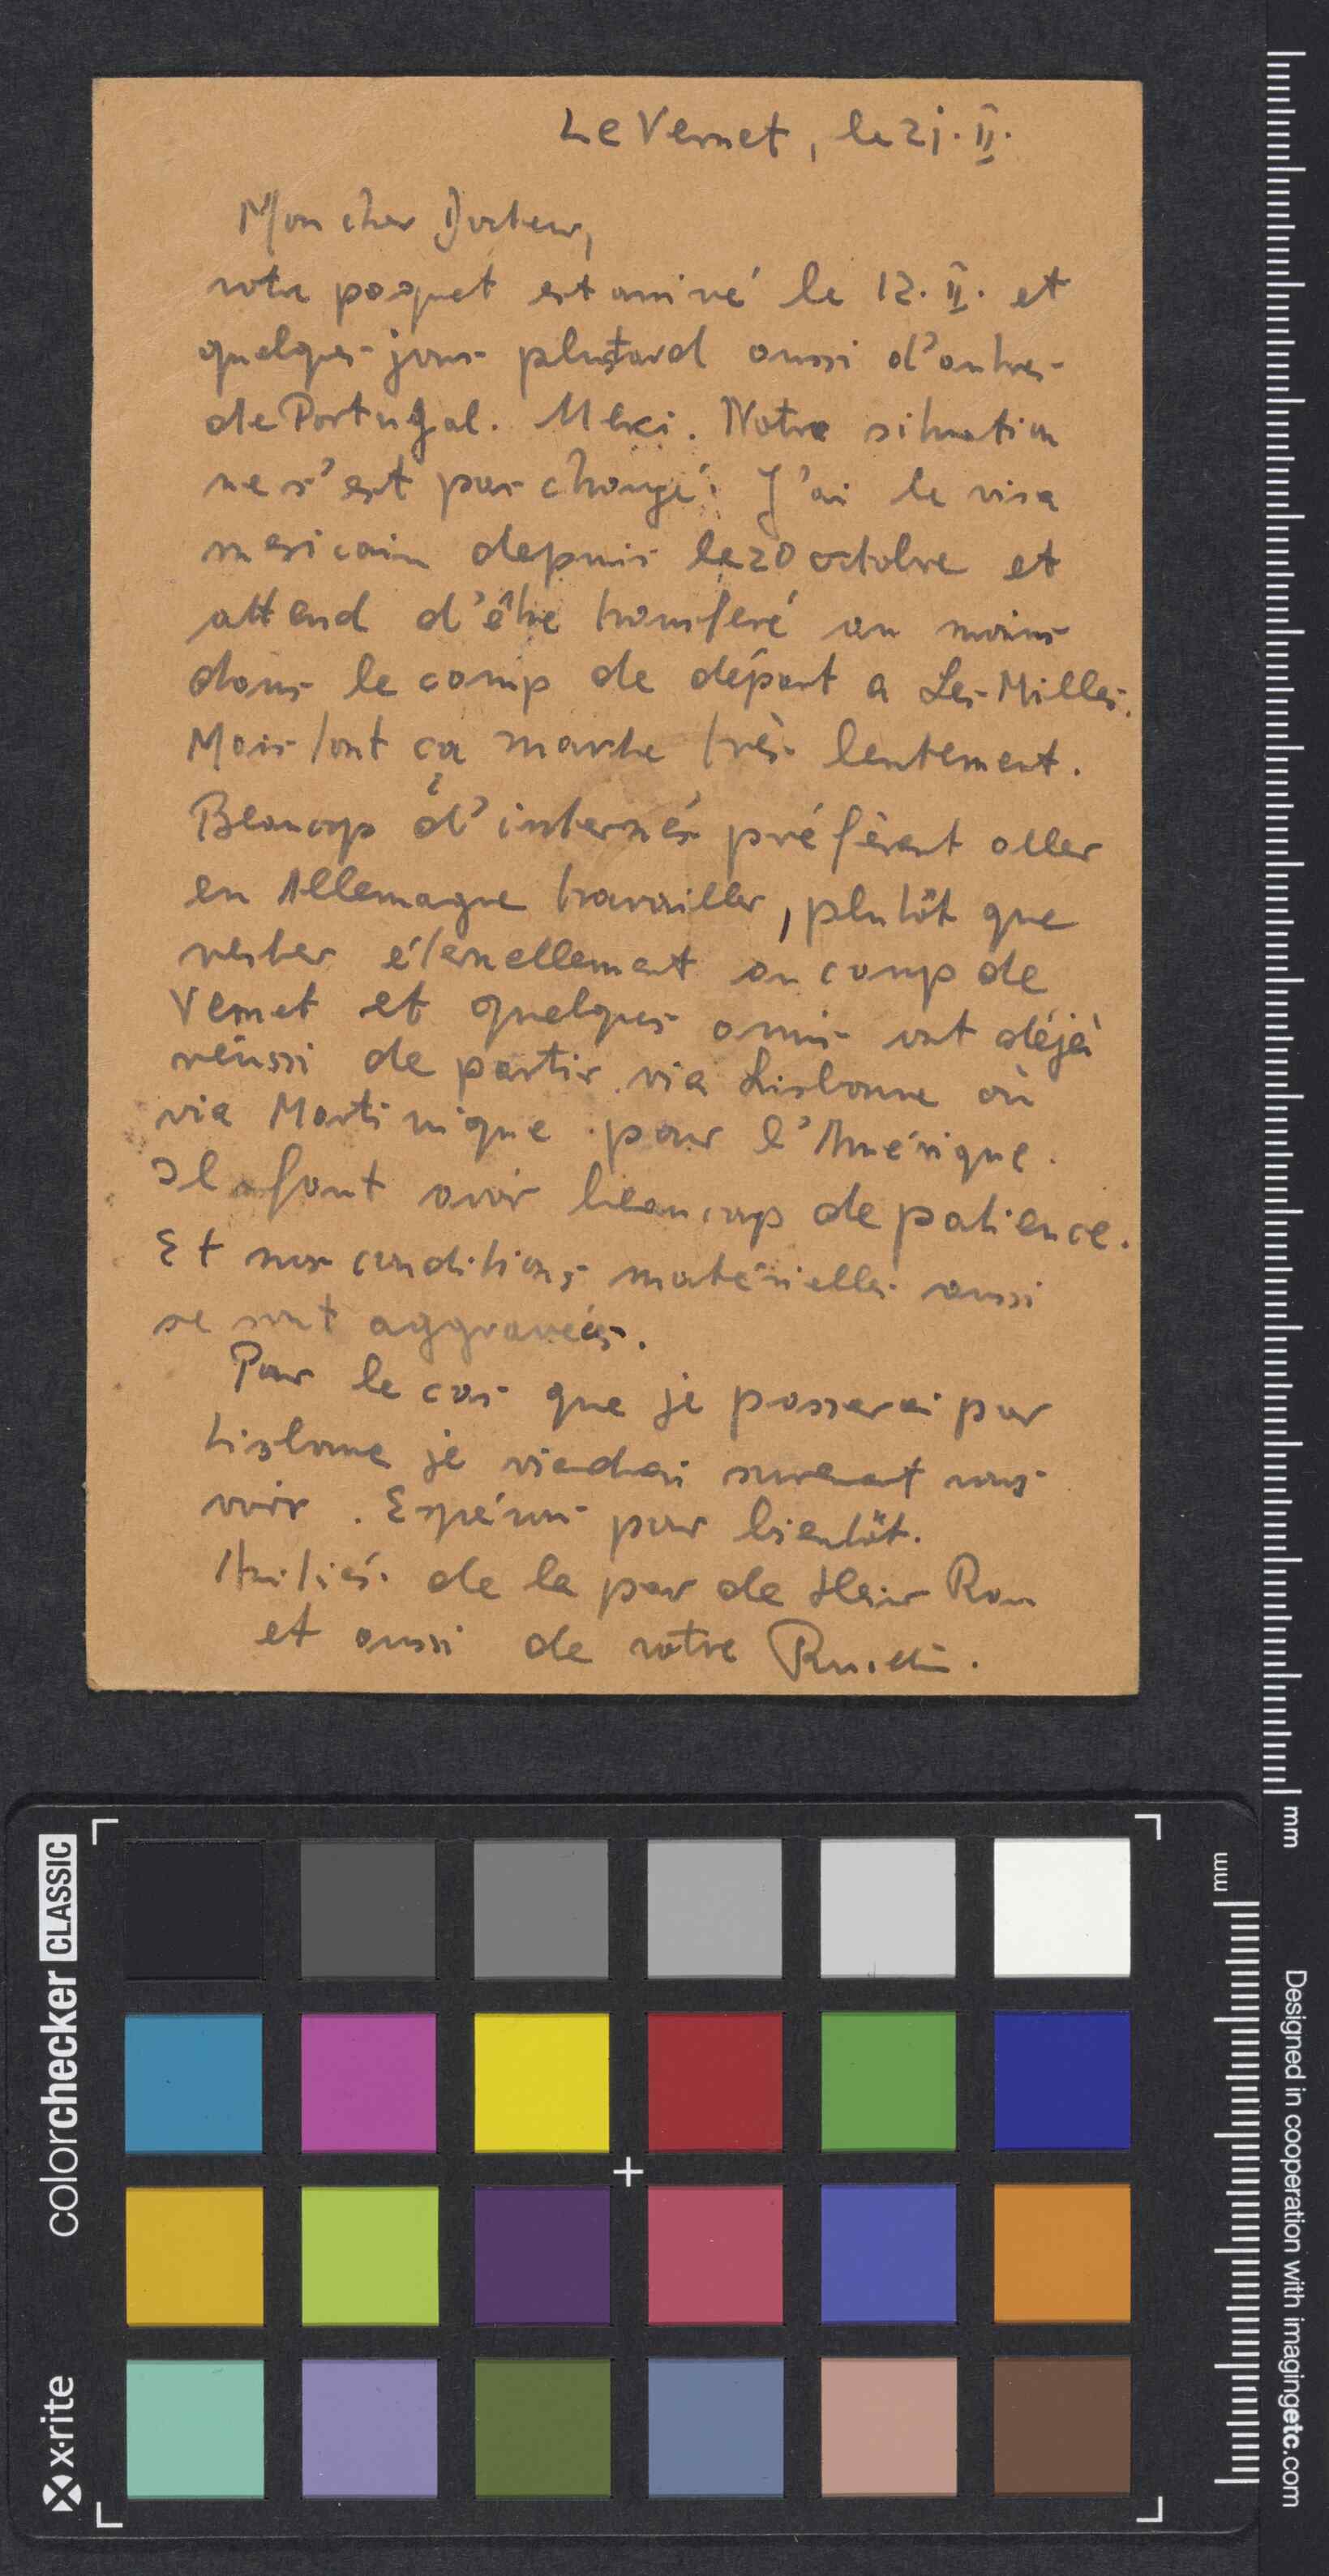 Le Vernet, le 21. II.
Mon cher Docteur,
votre paquet est arrivé le 12. II. et
quelques jours plus tard aussi d'autres
de Portugal. Merci. Notre situation
ne s'est pas changé. J'ai le visa
mexicain depuis le 20 octobre et
attend d'être transferé au moins
dans le camp de départ a Les-Milles.
Mais tout ça marche très lentement.
Beaucoup d'internés préfèrent aller
en Allemagne travailler, plutôt que
rester éternellement au camp de
Vernet et quelques amis ont déjà
réussi de partir via Lisbonne où
via Martinique pour l'Amérique.
Il faut avoir beaucoup de patience.
Et nos conditions matérielles aussi
se sont aggravées.
Pour le cas que je passerai par
Lisbonne je viendrai surement vous
voir. Espérons pour bientôt.
Amitiés de la par de Heir Rau
et aussi de votre
colorchecker CLASSIC
x-rite
mm
mm
Designed in cooperation with imagingetc.com